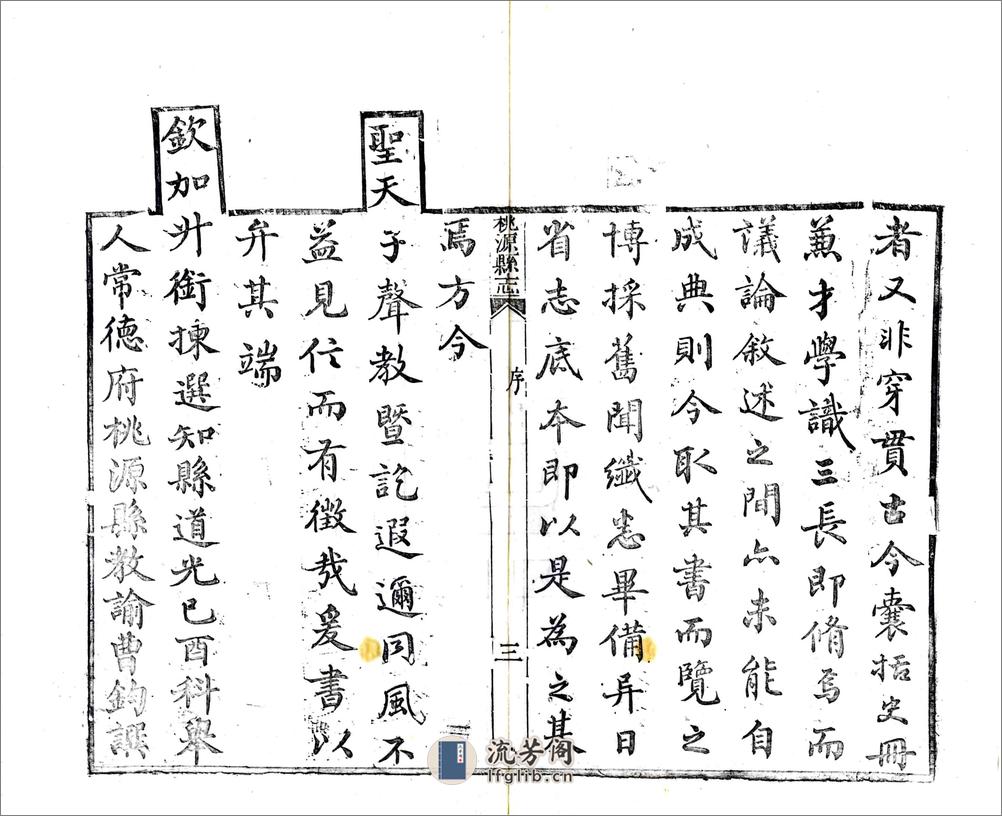 者又非穿貫古今囊括史冊
兼才學識三長即脩焉而
議論敘述之間亦未能自
成典則今取其書而覽之
博採舊聞纖悉畢備异日
省志底本即以是為之基
桃源縣志
序
三
焉方今
聖天子聲教暨訖遐邇同風不
益見信而有徵哉爰書以
弁其端
欽加升銜揀選知縣道光已酉科舉
人常德府桃源縣教諭曹鈞譔
流芳阁
lfglib.cn